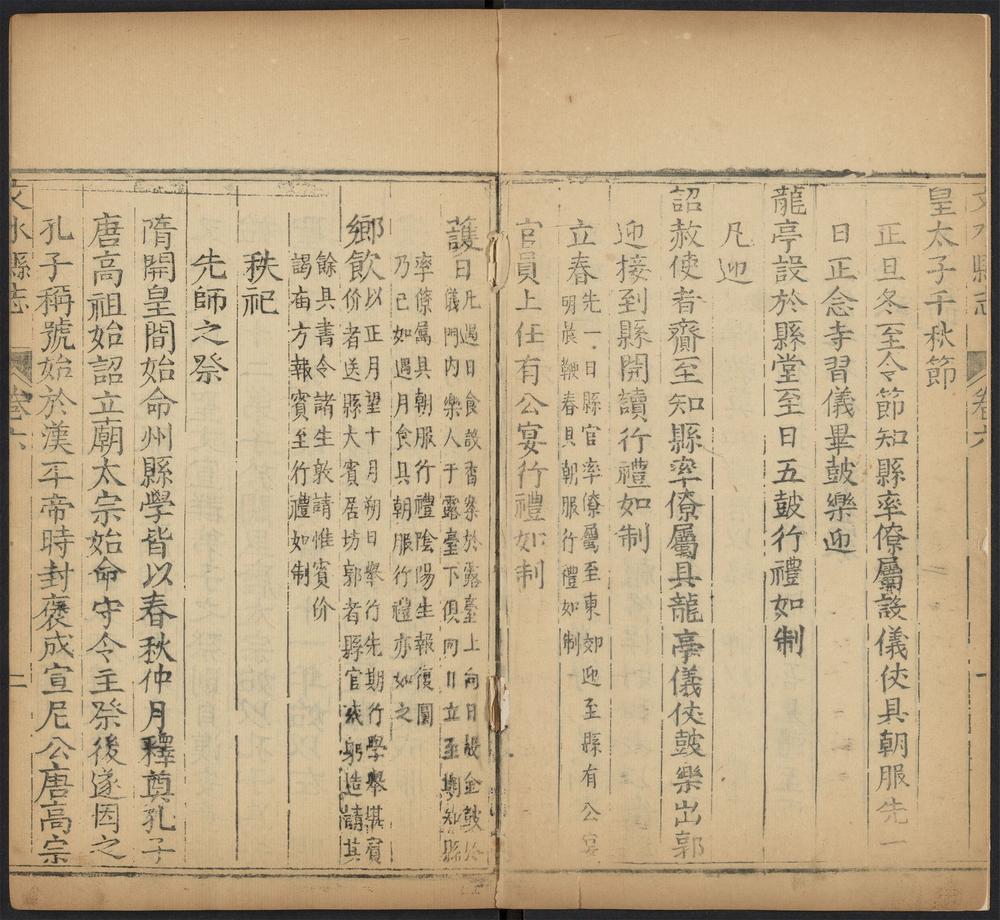 文水縣志 卷六 一
皇太子千秋節
正旦冬至令節知縣率僚屬設儀仗具朝服先一
日正念寺習儀畢鼓樂迎
龍亭設於縣堂至日五鼓行禮如制
凡迎
詔赦使者齎至知縣率僚屬具龍亭儀仗鼓樂出郭
迎接到縣開讀行禮如制
立春先一日縣官率僚屬至東郊迎至縣有公宴
明晨鞭春具朝服行禮如制
官員上任有公宴行禮如制
護日凡遇日食設香案於露臺上向日設金鼓於
儀門內樂人于露臺下俱向日立至期知縣
率僚屬具朝服行禮陰陽生報復圓
乃已如遇月食具朝服行禮亦如之
鄉飲以正月望十月朔日舉行先期行學舉堪賓
价者送縣大賓居坊郭者縣官或躬造請其
餘具書令諸生敦請惟賓价
謁廟方報賓至行禮如制
秩祀
先師之祭
隋開皇間始命州縣學皆以春秋仲月釋奠孔子
唐高祖始詔立廟太宗始命守令主祭後遂因之
孔子稱號始於漢平帝時封褒成宣尼公唐高宗
文水縣志 卷六 二